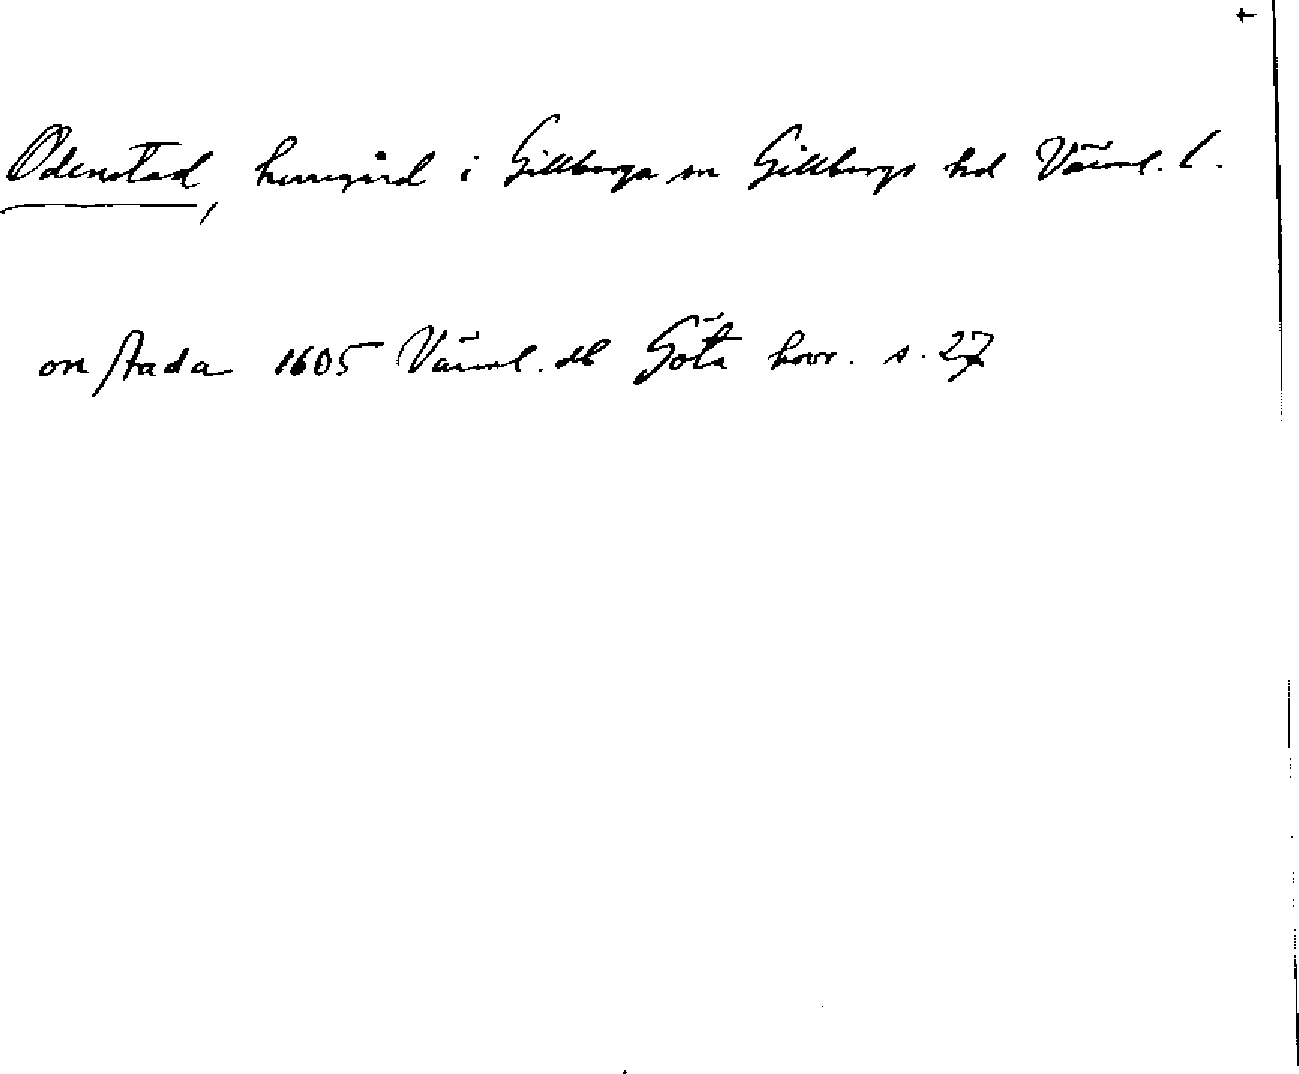 Odenstad, herregård i Gillberga sn Gillbergs hd Värml. l.
onstada 1605 Värml. db Göta hovr. s. 27